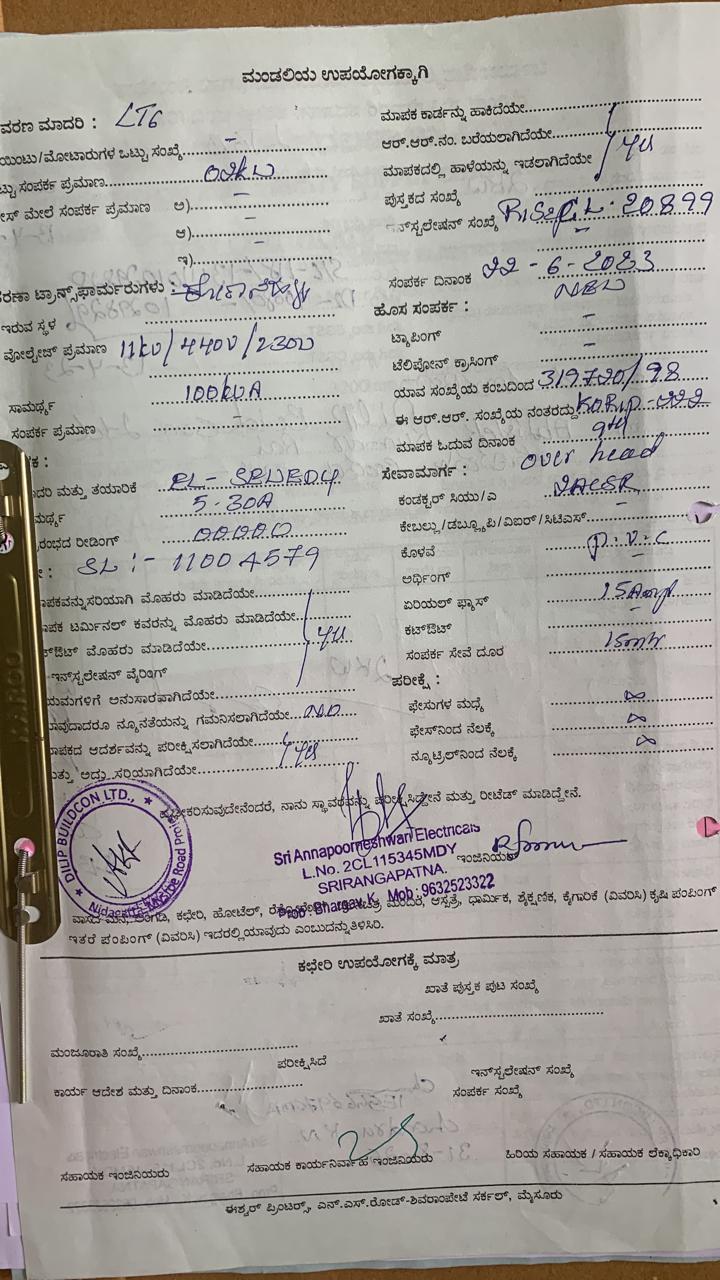 ಮಂಡಲಿಯ ಉಪಯೋಗಕ್ಕಾಗಿ
ವರಣ ಮಾದರಿ : LT6
ಯಿಂಟು/ಮೋಟಾರುಗಳ ಒಟ್ಟು ಸಂಖ್ಯೆ -
ಟ್ಟು ಸಂಪರ್ಕ ಪ್ರಮಾಣ 02kW
ಸ್ ಮೇಲೆ ಸಂಪರ್ಕ ಪ್ರಮಾಣ ಅ) -
ಆ) -
ಇ) -
ರಣಾ ಟ್ರಾನ್ಸ್‌ಫಾರ್ಮರುಗಳು :
ಇರುವ ಸ್ಥಳ
ವೋಲ್ಟೇಜ್ ಪ್ರಮಾಣ 11kV/440V/230V
ಸಾಮರ್ಥ್ಯ 100kVA
ಸಂಪರ್ಕ ಪ್ರಮಾಣ -
ದರಿ ಮತ್ತು ತಯಾರಿಕೆ
ಮರ್ಥ್ಯ 5-30A
ರಂಭದ ರೀಡಿಂಗ್ 00000
SL :- 11004579
ಾಪಕವನ್ನು ಸರಿಯಾಗಿ ಮೊಹರು ಮಾಡಿದೆಯೇ
ಾಪಕ ಟರ್ಮಿನಲ್ ಕವರನ್ನು ಮೊಹರು ಮಾಡಿದೆಯೇ
ಕಟ್‌ಔಟ್ ಮೊಹರು ಮಾಡಿದೆಯೇ yes
ಇನ್‌ಸ್ಟಲೇಷನ್ ವೈರಿಂಗ್
ಯಮಗಳಿಗೆ ಅನುಸಾರವಾಗಿದೆಯೇ
ಾವುದಾದರೂ ನ್ಯೂನತೆಯನ್ನು ಗಮನಿಸಲಾಗಿದೆಯೇ
ಾಪಕದ ಆದರ್ಶವನ್ನು ಪರೀಕ್ಷಿಸಲಾಗಿದೆಯೇ
ತ್ತು ಅದು ಸರಿಯಾಗಿದೆಯೇ yes
ಮಾಪಕ ಕಾರ್ಡನ್ನು ಹಾಕಿದೆಯೇ
ಆರ್.ಆರ್.ನಂ. ಬರೆಯಲಾಗಿದೆಯೇ
ಮಾಪಕದಲ್ಲಿ ಹಾಳೆಯನ್ನು ಇಡಲಾಗಿದೆಯೇ yes
ಪುಸ್ತಕದ ಸಂಖ್ಯೆ
ನ್‌ಸ್ಟಲೇಷನ್ ಸಂಖ್ಯೆ 20899
-
ಸಂಪರ್ಕ ದಿನಾಂಕ 22-6-2023
ಹೊಸ ಸಂಪರ್ಕ : NEW
ಟ್ಯಾಪಿಂಗ್ -
ಟೆಲಿಫೋನ್ ಕ್ರಾಸಿಂಗ್ -
ಯಾವ ಸಂಖ್ಯೆಯ ಕಂಬದಿಂದ 319720/98
ಈ ಆರ್.ಆರ್. ಸಂಖ್ಯೆಯ ನಂತರದ್ದು
ಮಾಪಕ ಓದುವ ದಿನಾಂಕ 9th
ಸೇವಾಮಾರ್ಗ : over head
ಕಂಡಕ್ಟರ್ ಸಿಯು/ಎ 2ACSR
ಕೇಬಲ್ಲು/ಡಬ್ಲ್ಯೂಪಿ/ವಿಐಆರ್/ಸಿಟಿಎಸ್ -
ಕೊಳವೆ P.V.C
ಅರ್ಥಿಂಗ್
ಏರಿಯಲ್ ಫ್ಯೂಸ್ 15Amp
ಕಟ್‌ಔಟ್ -
ಸಂಪರ್ಕ ಸೇವೆ ದೂರ 15mtr
ಪರೀಕ್ಷೆ :
ಫೇಸುಗಳ ಮಧ್ಯೆ ∞
ಫೇಸ್‌ನಿಂದ ನೆಲಕ್ಕೆ ∞
ನ್ಯೂಟ್ರಲ್‌ನಿಂದ ನೆಲಕ್ಕೆ ∞
ದೃಢೀಕರಿಸುವುದೇನೆಂದರೆ, ನಾನು ಸ್ಥಾವರವನ್ನು ಪರೀಕ್ಷಿಸಿದ್ದೇನೆ ಮತ್ತು ರೀಟೆಡ್ ಮಾಡಿದ್ದೇನೆ.
DILIP BUILDCON LTD.,
Road Proj
Sri Annapoorneshwari Electricals
L.No. 2CL115345MDY
SRIRANGAPATNA.
Prop: Bhargav.K. Mob: 9632523322
ಇಂಜಿನಿಯರ್
ವಾಸದ ಮನೆ, ಅಂಗಡಿ, ಕಛೇರಿ, ಹೋಟೆಲ್, ಮಂದಿರ, ಆಸ್ಪತ್ರೆ, ಧಾರ್ಮಿಕ, ಶೈಕ್ಷಣಿಕ, ಕೈಗಾರಿಕೆ (ವಿವರಿಸಿ) ಕೃಷಿ ಪಂಪಿಂಗ್
ಇತರೆ ಪಂಪಿಂಗ್ (ವಿವರಿಸಿ) ಇದರಲ್ಲಿ ಯಾವುದು ಎಂಬುದನ್ನು ತಿಳಿಸಿರಿ.
ಕಛೇರಿ ಉಪಯೋಗಕ್ಕೆ ಮಾತ್ರ
ಖಾತೆ ಪುಸ್ತಕ ಪುಟ ಸಂಖ್ಯೆ
ಖಾತೆ ಸಂಖ್ಯೆ
ಮಂಜೂರಾತಿ ಸಂಖ್ಯೆ
ಪರೀಕ್ಷಿಸಿದೆ
ಇನ್‌ಸ್ಟಲೇಷನ್ ಸಂಖ್ಯೆ
ಕಾರ್ಯ ಆದೇಶ ಮತ್ತು ದಿನಾಂಕ
ಸಂಪರ್ಕ ಸಂಖ್ಯೆ
ಸಹಾಯಕ ಇಂಜಿನಿಯರು ಸಹಾಯಕ ಕಾರ್ಯನಿರ್ವಾಹ ಇಂಜಿನಿಯರು ಹಿರಿಯ ಸಹಾಯಕ / ಸಹಾಯಕ ಲೆಕ್ಕಾಧಿಕಾರಿ
ಈಶ್ವರ್ ಪ್ರಿಂಟರ್ಸ್, ಎನ್.ಎಸ್.ರೋಡ್-ಶಿವರಾಂಪೇಟೆ ಸರ್ಕಲ್, ಮೈಸೂರು